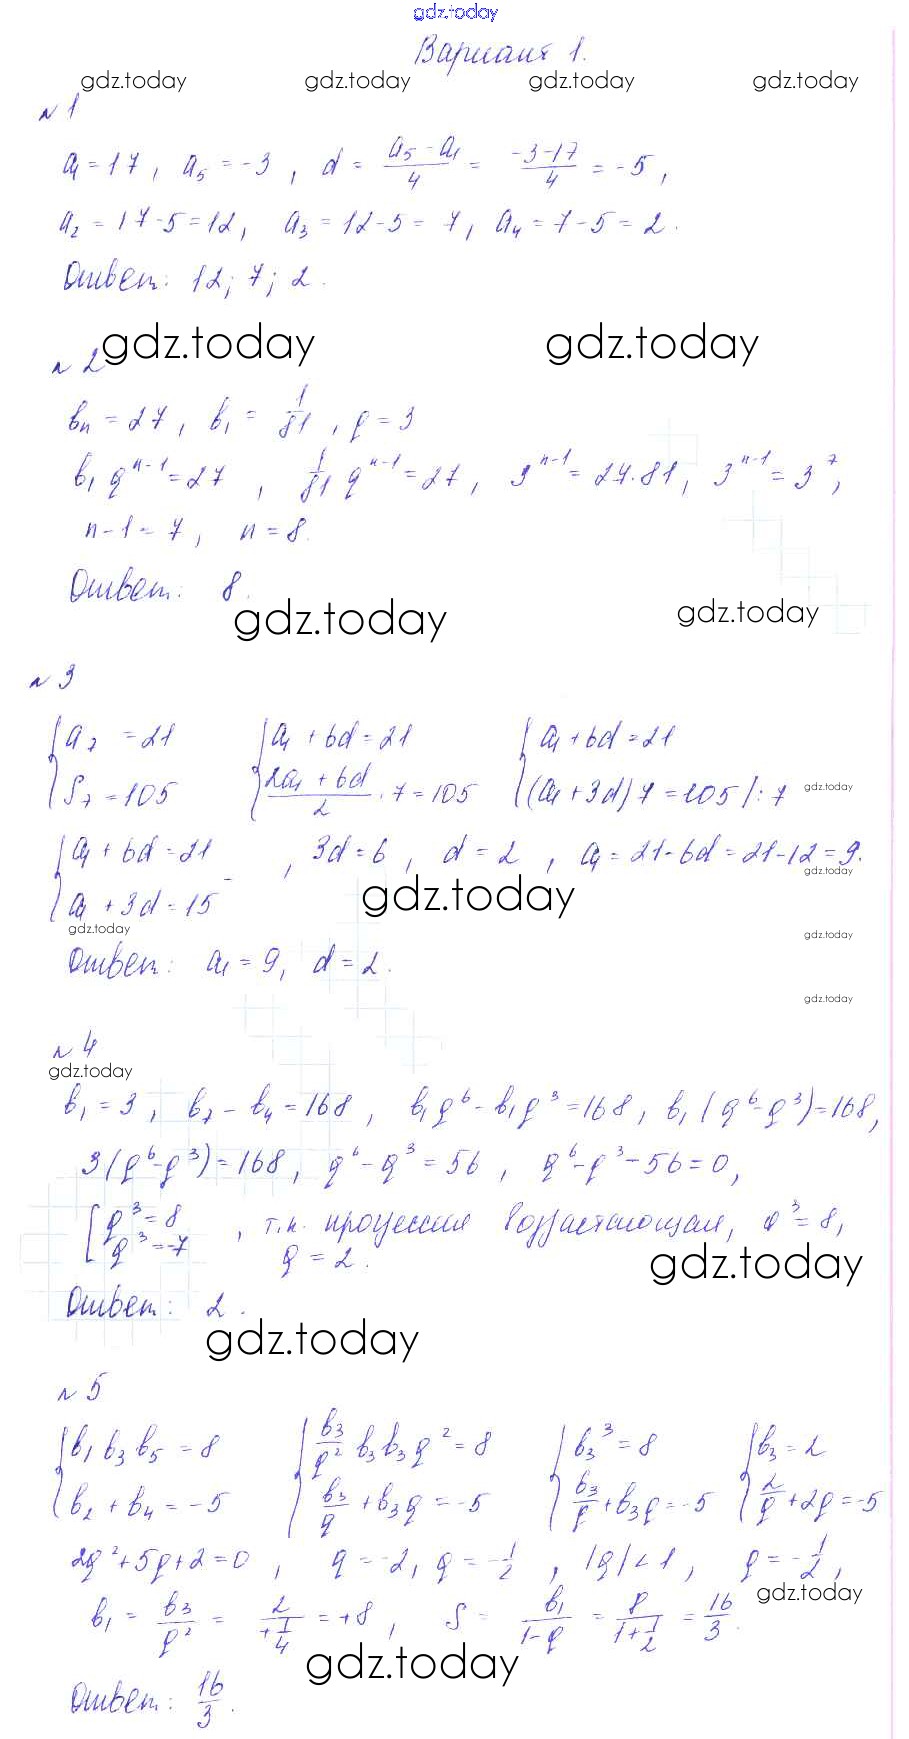 gdz.today
Вариант 1.
gdz.today gdz.today gdz.today gdz.today
№ 1
a₁ = 17, a₅ = -3, d = (a₅ - a₁)/4 = (-3-17)/4 = -5,
a₂ = 17-5 = 12, a₃ = 12-5 = 7, a₄ = 7-5 = 2.
Ответ: 12; 7; 2.
gdz.today gdz.today
№ 2
bₙ = 27, b₁ = 1/81, q = 3
b₁qⁿ⁻¹ = 27, 1/81 qⁿ⁻¹ = 27, 3ⁿ⁻¹ = 27·81, 3ⁿ⁻¹ = 3⁷,
n-1 = 7, n = 8.
Ответ: 8.
gdz.today gdz.today
№ 3
{a₇ = 21 {a₁ + 6d = 21 {a₁ + 6d = 21
{S₇ = 105 {(2a₁ + 6d)/2 · 7 = 105 {(a₁ + 3d) 7 = 105 /: 7 gdz.today
{a₁ + 6d = 21
{a₁ + 3d = 15 - , 3d = 6, d = 2, a₁ = 21-6d = 21-12 = 9.
gdz.today gdz.today
gdz.today gdz.today
Ответ: a₁ = 9, d = 2.
gdz.today
№ 4
gdz.today
b₁ = 3, b₇ - b₄ = 168, b₁q⁶ - b₁q³ = 168, b₁(q⁶-q³) = 168,
3(q⁶-q³) = 168, q⁶ - q³ = 56, q⁶-q³-56 = 0,
[q³ = 8
[q³ = -7 , т.к. прогрессия возрастающая, q³ = 8,
q = 2.
gdz.today
Ответ: 2.
gdz.today
№ 5
{b₁b₃b₅ = 8 {b₃/q² b₃b₃q² = 8 {b₃³ = 8 {b₃ = 2
{b₂ + b₄ = -5 {b₃/q + b₃q = -5 {b₃/q + b₃q = -5 {2/q + 2q = -5
2q² + 5q + 2 = 0, q = -2, q = -1/2, |q| < 1, q = -1/2,
gdz.today
b₁ = b₃/q² = 2/(+1/4) = +8, S = b₁/(1-q) = 8/(1+1/2) = 16/3.
gdz.today
Ответ: 16/3.